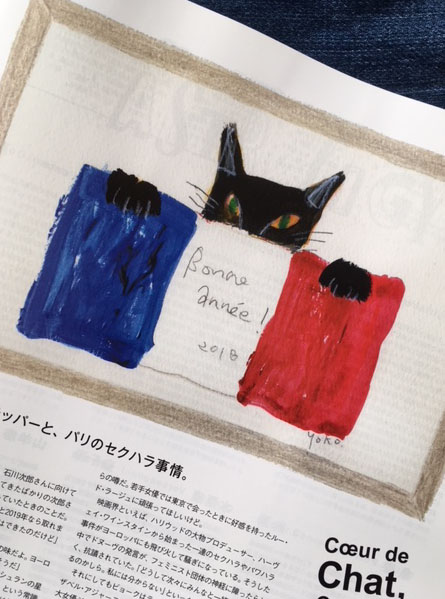 Bonne
année!
2018
YOKO.
ッパーと、パリのセクハラ事情。
石川次郎さんに向けて
てきたばかりの次郎さ
っていたときのことだ。
と2019年なら取れま
はできたのだけど」
の味だよ。ヨーロ
そうだ」
シュランの星
らの噂だ。若手女優では東京で会ったときに好感を持ったルー・
ド・ラージュに頑張ってほしいけど。
映画界といえば、ハリウッドの大物プロデューサー、ハーヴ
ェイ・ワインスタインから始まった一連のセクハラやパワハラ
事件がヨーロッパにも飛び火して騒ぎになっている。そうした
中でドヌーヴの発言が、フェミニスト団体の神経に障ったらし
く、抗議されていた。「どうして次々にみんなと
るのかしら。私には分からない」とい
それにしてもビョークは
Cœur de
Chat,